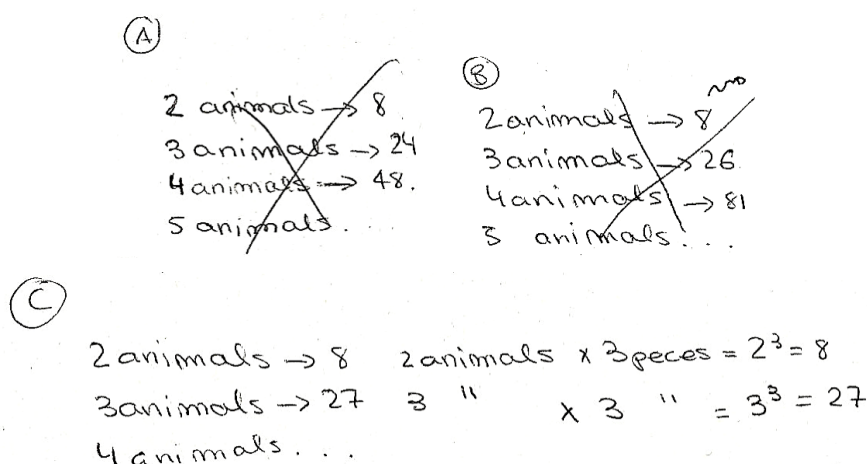 A
2 animals → 8
3 animals → 24
4 animals → 48.
5 animals. . . .
B
no
2 animals → 8
3 animals → 26
4 animals → 81
5 animals. . . .
C
2 animals → 8 2 animals x 3 peces = 2³ = 8
3 animals → 27 3 " x 3 " = 3³ = 27
4 animals. . .